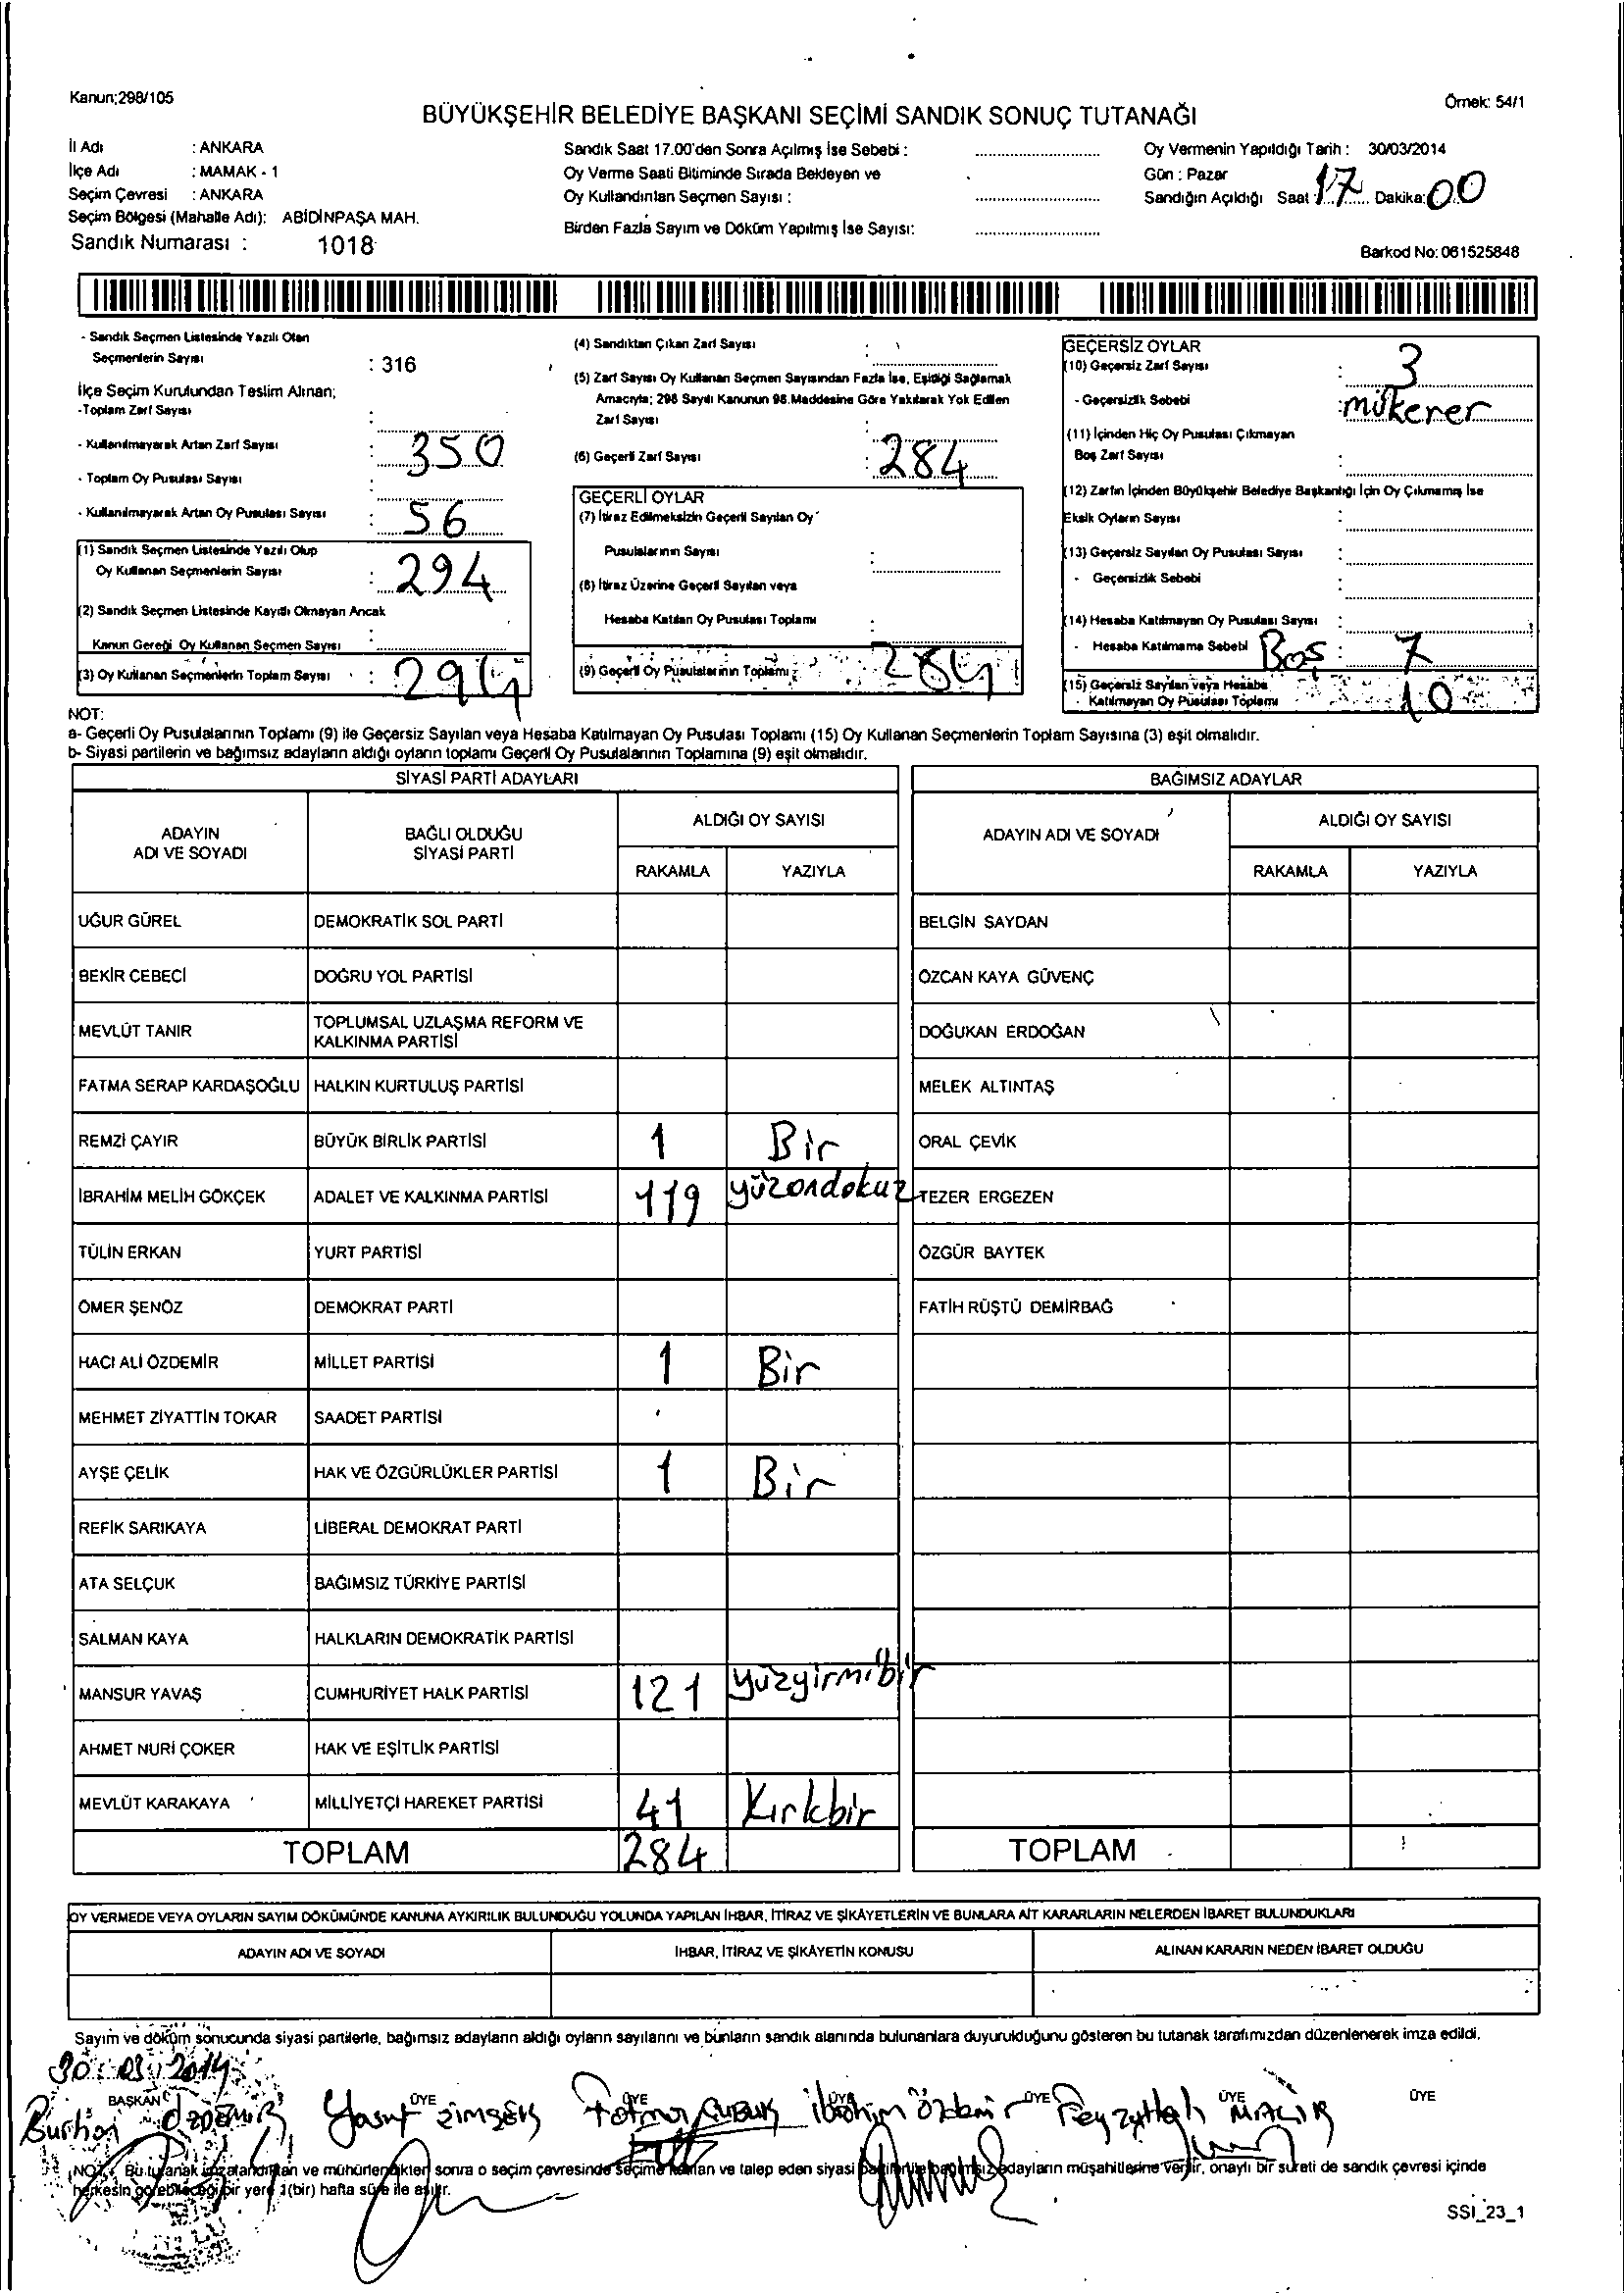 Kanun;298/105
Örnek: 54/1
BÜYÜKŞEHİR BELEDİYE BAŞKANI SEÇİMİ SANDIK SONUÇ TUTANAĞI
İl Adı : ANKARA
İlçe Adı : MAMAK - 1
Seçim Çevresi : ANKARA
Seçim Bölgesi (Mahalle Adı): ABİDİNPAŞA MAH.
Sandık Numarası : 1018
Sandık Saat 17.00'den Sonra Açılmış İse Sebebi :
Oy Verme Saati Bitiminde Sırada Bekleyen ve
Oy Kullandırılan Seçmen Sayısı :
Birden Fazla Sayım ve Döküm Yapılmış İse Sayısı:
Oy Vermenin Yapıldığı Tarih : 30/03/2014
Gün : Pazar
Sandığın Açıldığı Saat : 17 Dakika: 00
Barkod No: 061525848
- Sandık Seçmen Listesinde Yazılı Olan
Seçmenlerin Sayısı : 316
İlçe Seçim Kurulundan Teslim Alınan;
-Toplam Zarf Sayısı :
- Kullanılmayarak Artan Zarf Sayısı : 350
- Toplam Oy Pusulası Sayısı :
- Kullanılmayarak Artan Oy Pusulası Sayısı : 56
(1) Sandık Seçmen Listesinde Yazılı Olup
Oy Kullanan Seçmenlerin Sayısı : 294
(2) Sandık Seçmen Listesinde Kayıtlı Olmayan Ancak
Kanun Gereği Oy Kullanan Seçmen Sayısı :
(3) Oy Kullanan Seçmenlerin Toplam Sayısı : 294
(4) Sandıktan Çıkan Zarf Sayısı :
(5) Zarf Sayısı Oy Kullanan Seçmen Sayısından Fazla İse, Eşitliği Sağlamak
Amacıyla; 298 Sayılı Kanunun 98.Maddesine Göre Yakılarak Yok Edilen
Zarf Sayısı :
(6) Geçerli Zarf Sayısı : 284
GEÇERLİ OYLAR
(7) İtiraz Edilmeksizin Geçerli Sayılan Oy
Pusulalarının Sayısı :
(8) İtiraz Üzerine Geçerli Sayılan veya
Hesaba Katılan Oy Pusulası Toplamı :
(9) Geçerli Oy Pusulalarının Toplamı : 284
GEÇERSİZ OYLAR
(10) Geçersiz Zarf Sayısı : 3
- Geçersizlik Sebebi : mükerer
(11) İçinden Hiç Oy Pusulası Çıkmayan
Boş Zarf Sayısı :
(12) Zarfın İçinden Büyükşehir Belediye Başkanlığı İçin Oy Çıkmamış İse
Eksik Oyların Sayısı :
(13) Geçersiz Sayılan Oy Pusulası Sayısı :
- Geçersizlik Sebebi :
(14) Hesaba Katılmayan Oy Pusulası Sayısı :
- Hesaba Katılmama Sebebi Boş : 7
(15) Geçersiz Sayılan veya Hesaba
Katılmayan Oy Pusulası Toplamı 10
NOT:
a- Geçerli Oy Pusulalarının Toplamı (9) ile Geçersiz Sayılan veya Hesaba Katılmayan Oy Pusulası Toplamı (15) Oy Kullanan Seçmenlerin Toplam Sayısına (3) eşit olmalıdır.
b- Siyasi partilerin ve bağımsız adayların aldığı oyların toplamı Geçerli Oy Pusulalarının Toplamına (9) eşit olmalıdır.
SİYASİ PARTİ ADAYLARI
ADAYIN ADI VE SOYADI
BAĞLI OLDUĞU SİYASİ PARTİ
ALDIĞI OY SAYISI
RAKAMLA YAZIYLA
UĞUR GÜREL DEMOKRATİK SOL PARTİ
BEKİR CEBECİ DOĞRU YOL PARTİSİ
MEVLÜT TANIR TOPLUMSAL UZLAŞMA REFORM VE KALKINMA PARTİSİ
FATMA SERAP KARDAŞOĞLU HALKIN KURTULUŞ PARTİSİ
REMZİ ÇAYIR BÜYÜK BİRLİK PARTİSİ 1 Bir
İBRAHİM MELİH GÖKÇEK ADALET VE KALKINMA PARTİSİ 119 yüzondokuz
TÜLİN ERKAN YURT PARTİSİ
ÖMER ŞENÖZ DEMOKRAT PARTİ
HACI ALİ ÖZDEMİR MİLLET PARTİSİ 1 Bir
MEHMET ZİYATTİN TOKAR SAADET PARTİSİ
AYŞE ÇELİK HAK VE ÖZGÜRLÜKLER PARTİSİ 1 Bir
REFİK SARIKAYA LİBERAL DEMOKRAT PARTİ
ATA SELÇUK BAĞIMSIZ TÜRKİYE PARTİSİ
SALMAN KAYA HALKLARIN DEMOKRATİK PARTİSİ
MANSUR YAVAŞ CUMHURİYET HALK PARTİSİ 121 yüzyirmibir
AHMET NURİ ÇOKER HAK VE EŞİTLİK PARTİSİ
MEVLÜT KARAKAYA MİLLİYETÇİ HAREKET PARTİSİ 41 Kırkbir
TOPLAM 284
BAĞIMSIZ ADAYLAR
ADAYIN ADI VE SOYADI
ALDIĞI OY SAYISI
RAKAMLA YAZIYLA
BELGİN SAYDAN
ÖZCAN KAYA GÜVENÇ
DOĞUKAN ERDOĞAN
MELEK ALTINTAŞ
ORAL ÇEVİK
TEZER ERGEZEN
ÖZGÜR BAYTEK
FATİH RÜŞTÜ DEMİRBAĞ
TOPLAM
OY VERMEDE VEYA OYLARIN SAYIM DÖKÜMÜNDE KANUNA AYKIRILIK BULUNDUĞU YOLUNDA YAPILAN İHBAR, İTİRAZ VE ŞİKÂYETLERİN VE BUNLARA AİT KARARLARIN NELERDEN İBARET BULUNDUKLARI
ADAYIN ADI VE SOYADI İHBAR, İTİRAZ VE ŞİKÂYETİN KONUSU ALINAN KARARIN NEDEN İBARET OLDUĞU
Sayım ve döküm sonucunda siyasi partilerle, bağımsız adayların aldığı oyların sayılarını ve bunların sandık alanında bulunanlara duyurulduğunu gösteren bu tutanak tarafımızdan düzenlenerek imza edildi.
30.03.2014
BAŞKAN ÜYE ÜYE ÜYE ÜYE ÜYE ÜYE
Burhan ÖZDEMİR Yasuf ŞİMŞEK Fatma ÇUBUK İbrahim Özdemir Feyzullah
NOT: Bu tutanak imzalandıktan ve mühürlendikten sonra o seçim çevresinde seçime katılan ve talep eden siyasi partilerle bağımsız adayların müşahitlerine verilir, onaylı bir sureti de sandık çevresi içinde
herkesin görebileceği bir yere 1(bir) hafta süre ile asılır.
SSI_23_1